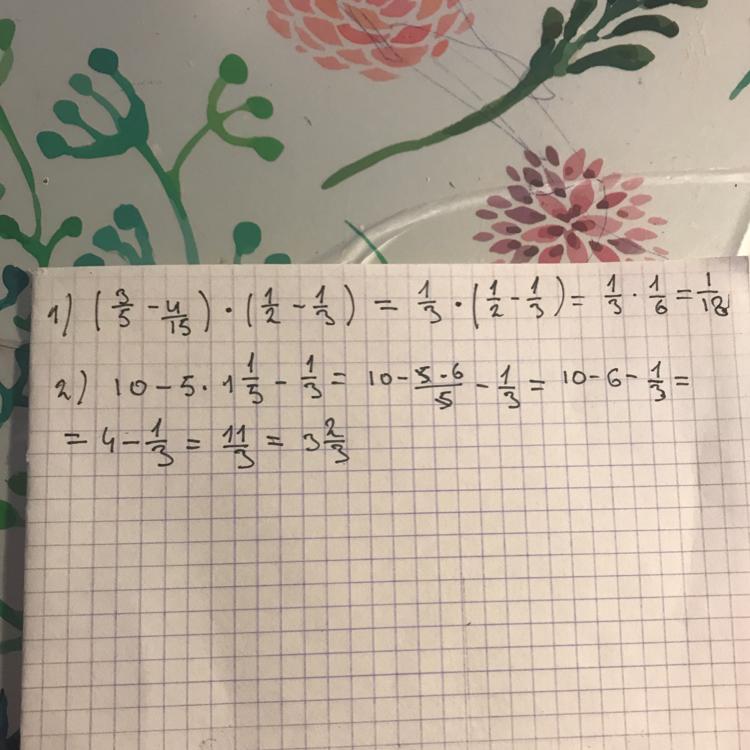 1) (3/5 - 4/15) · (1/2 - 1/3) = 1/3 · (1/2 - 1/3) = 1/3 · 1/6 = 1/18
2) 10 - 5 · 1 1/5 - 1/3 = 10 - 5·6/5 - 1/3 = 10 - 6 - 1/3 =
= 4 - 1/3 = 11/3 = 3 2/3